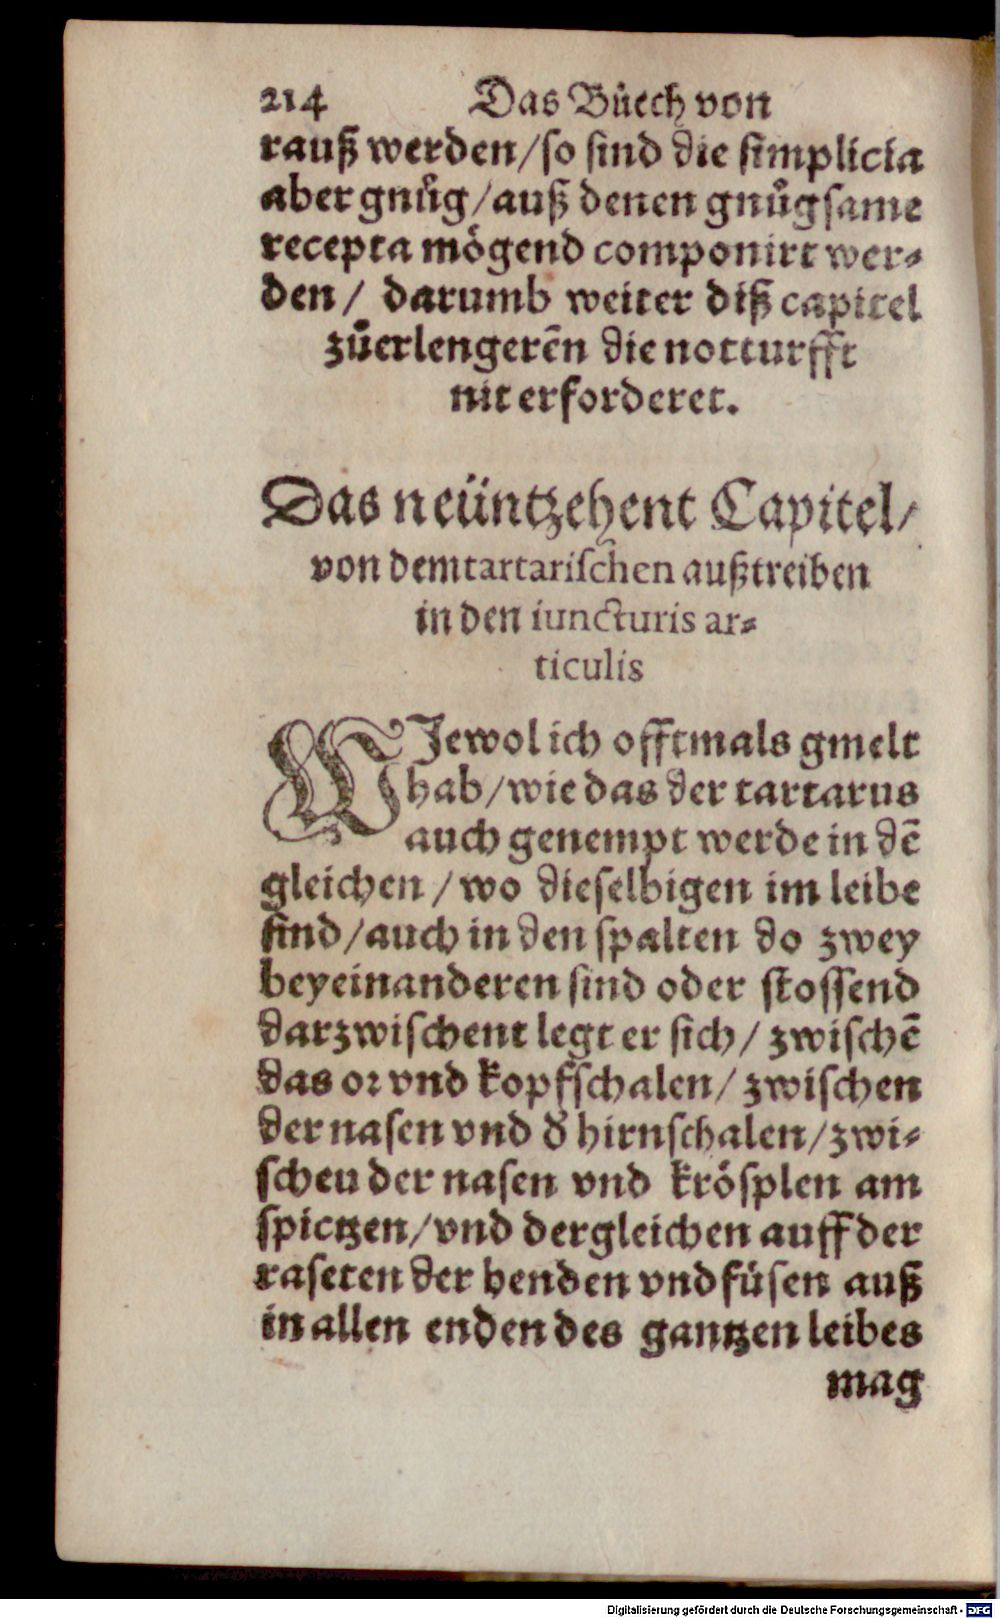 214 Das Bůech von
rauß werden/so sind die simplicia
aber gnůg/auß denen gnůgsame
recepta mögend componirt wer⸗
den/ darumb weiter diß capitel
zůerlengerẽn die notturfft
nit erforderet.
Das neüntzehent Capitel/
von dem tartarischen außtreiben
in den iuncturis ar⸗
ticulis
WJewol ich offtmals gmelt
hab/wie das der tartarus
auch genempt werde in dẽ
gleichen/wo dieselbigen im leibe
sind/auch in den spalten do zwey
beyeinanderen sind oder stossend
darzwischent legt er sich/ zwischẽ
das or vnd kopfschalen/ zwischen
der nasen vnd d' hirnschalen/zwi⸗
scheu der nasen vnd krösplen am
spictzen/vnd dergleichen auff der
raseten der henden vnd füsen auß
in allen enden des gantzen leibes
mag
Digitalisierung gefördert durch die Deutsche Forschungsgemeinschaft - DFG